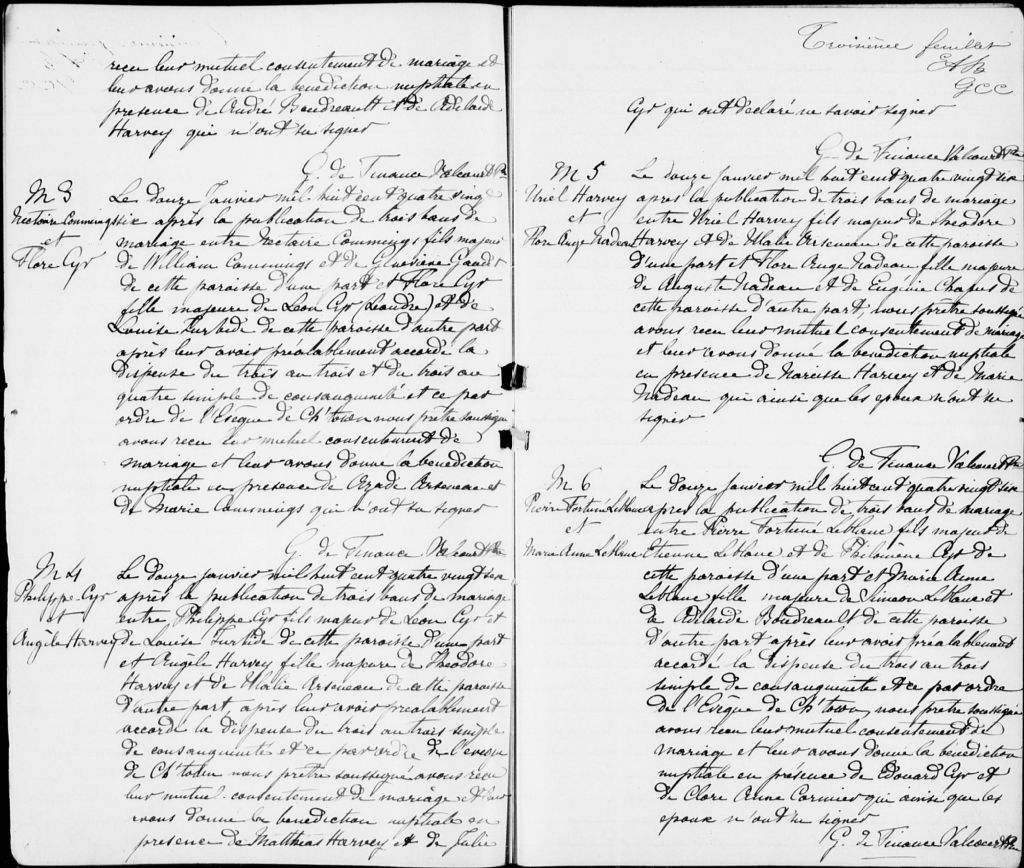 recu leur mutuel consentement de mariage et
leur avons donne la benediction nuptiale en
presence de André Boudreault et de Adelaide
Harvey qui n'ont su signer
G. de Finance Valcourt Ptr
M 3
Nectaire Commings
et
Flore Cyr
Le douze Janvier mil huit cent quatre vingt
six après la publication de trois bans de
mariage entre Nectaire Commings fils majeur
de William Commings et de Genevieve Gaudet
de cette paroisse d'une part et Flore Cyr
fille majeure de Leon Cyr (Leandre) et de
Louise Turbide de cette paroisse d'autre part
après leur avoir préalablement accorde la
dispense du trois au trois et du trois au
quatre simple de consanguinité et ce par
ordre de l'Evêque de Ch'town nous prêtre soussigné
avons recu leur mutuel consentement de
mariage et leur avons donne la benediction
nuptiale en presence de Azade Arseneau et
de Marie Commings qui n'ont su signer
G. de Finance Valcourt Ptr
M 4
Philippe Cyr
et
Angèle Harvey
Le douze janvier mil huit cent quatre vingt six
après la publication de trois bans de mariage
entre Philippe Cyr fils majeur de Leon Cyr et
de Louise Turbide de cette paroisse d'une part
et Angèle Harvey fille majeure de Theodore
Harvey et de Ulalie Arseneau de cette paroisse
d'autre part, après leur avoir préalablement
accorde la dispense du trois au trois simple
de consanguinité et ce par ordre de l'eveque
de Ch'town nous prêtre soussigne avons recu
leur mutuel consentement de mariage et leur
avons donne la benediction nuptiale en
presence de Matthias Harvey et de Julie
Troisième feuillet
GCC
Cyr qui ont declaré ne savoir signer
G. de Finance Valcourt Ptr
M 5
Uriel Harvey
et
Flore Ange Nadeau
Le douze janvier mil huit cent quatre vingt six
apres la publication de trois bans de mariage
entre Uriel Harvey fils majeur de Theodore
Harvey et de Ulalie Arseneau de cette paroisse
d'une part et Flore Ange Nadeau fille majeure
de Auguste Nadeau et de Eugénie Chapus de
cette paroisse d'autre part, nous prêtre soussigné
avons recu leur mutuel consentement de mariage
et leur avons donné la benediction nuptiale
en presence de Narcisse Harvey et de Marie
Nadeau qui ainsi que les epoux n'ont su
signer
G. de Finance Valcourt Ptr
M 6
Pierre Fortuné Leblanc
et
Marie Anne Leblanc
Le douze janvier mil huit cent quatre vingt six
apres la publication de trois bans de mariage
entre Pierre Fortuné Leblanc fils majeur de
Etienne Leblanc et de Philomène Cyr de
cette paroisse d'une part et Marie Anne
Leblanc fille majeure de Simeon Leblanc et
de Adelaide Boudreault de cette paroisse
d'autre part après leur avoir préalablement
accordé la dispense du trois au trois
simple de consanguinité et ce par ordre
de l'Evêque de Ch'town, nous prêtre soussigné
avons recu leur mutuel consentement de
mariage et leur avons donne la bénédiction
nuptiale en présence de Edouard Cyr et
de Clore Anne Cormier qui ainsi que les
epoux n'ont su signer
G. de Finance Valcourt Ptr